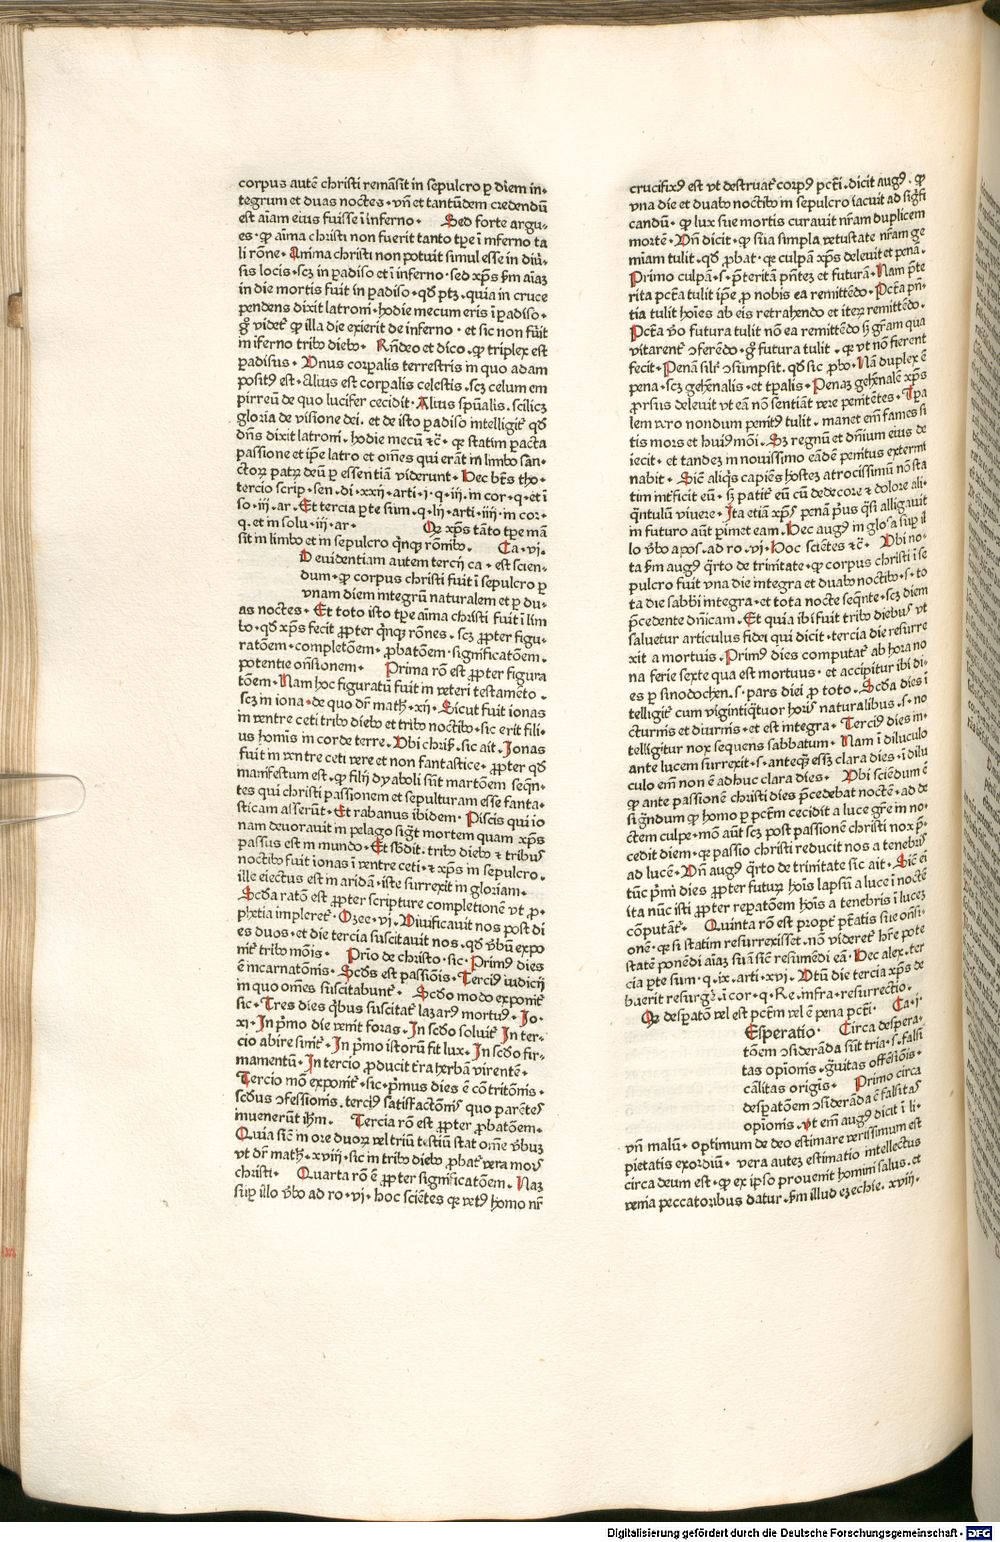 corpus autē christi remāsit in sepulcro ꝑ diem in⸗
tegrum et duas noctes · vn̄ et tantūdem credendū
est aīam eius fuisse ī inferno · Sed forte argu⸗
es · qꝫ aīma christi non fuerit tanto tꝑe ī inferno ta
li rōne · Anima christi non potuit simul esse in diūˢ
sis locis · scꝫ in ꝑadiso et ī inferno · sed xp̄s ẜm aīaꝫ
in die mortis fuit in ꝑadiso · qd̓ ptꝫ · quia in cruce
pendens dixit latroni · hodie mecum eris ī ꝑadiso ·
gͦ videt̄ qꝫ illa die exierit de inferno · et sic non fūit
in īferno tribꝰ diebꝰ · Rn̄deo et dico · qꝫ triplex est
ꝑadisus · Vnus corꝑalis terrestris in quo adam
positꝰ est · Alius est corꝑalis celestis · scꝫ celum em
pirreū de quo lucifer cecidit · Alius spūalis · scilicꝫ
gloria de visione dei · et de isto ꝑadiso intelligit̄ qd̓
dn̄s dixit latroni · hodie mecū ⁊c̄ · qꝫ statim ꝑacta
passione et ip̄e latro et om̄es qui erāt in limbo san⸗
ctoꝝ patꝝ deū ꝑ essentiā viderunt · Hec bēs tho⸗
tercio scrip · sen · di · xxij · arti · j · q · iij · in cor · q · et ī
so · iij · ar · Et tercia ꝑte sum · q · lij · arti · iiij · in cor⸗
q · et in solu · iij · ar · Qꝫ xp̄s tāto tꝑe mā
sit in limbo et in sepulcro qͥnqꝫ rōnibꝰ · Ca · vi ·
D evidentiam autem tercij ca · est scien⸗
dum · qꝫ corpus christi fuit ī sepulcro ꝑ
vnam diem integrū naturalem et ꝑ du⸗
as noctes · Et toto isto tꝑe aīma christi fuit ī lim
bo · qd̓ xp̄s fecit ꝓpter qͥnqꝫ rōnes · scꝫ ꝓpter figu⸗
ratōem · completōem · ꝓbatōem · significatōem ·
potentie on̄sionem · Prima rō est ꝓpter figura
tōem · Nam hoc figuratū fuit in veteri testamēto ·
scꝫ in iona · de quo dr̄ math̓ · xij · Sicut fuit ionas
in ventre ceti tribꝰ diebꝰ et tribꝰ noctibꝰ · sic erit fili⸗
us homīs in corde terre · Vbi chrisͭ · sic ait · Jonas
fuit in ventre ceti vere et non fantastice · ꝓpter qd̓
manifestum est · qꝫ filij dyaboli sūt martōem seqn̄⸗
tes qui christi passionem et sepulturam esse fanta⸗
sticam asserūt · Et rabanus ibidem · Piscis qui io
nam deuorauit in pelago siḡt mortem quam xp̄s
passus est in mundo · Et sb̓dit · tribꝰ diebꝰ ⁊ tribus
noctibꝰ fuit ionas ī ventre ceti · ⁊ xp̄s in sepulcro ·
ille eiectus est in aridā · iste surrexit in gloriam ·
Scd̓a ratō est ꝓpter scripture completionē vt ꝓ⸗
phetia impleret̄ · Ozee · vi · Viuificauit nos post di
es duos · et die tercia suscitauit nos · qd̓ vb̓ū expo
nit̄ tribꝰ mōis · Prīo de christo · sic · Primꝰ dies
ē incarnatōnis · Scd̓s est passiōis · Terciꝰ iudicij
in quo om̄es suscitabunt̄ · Scd̓o modo exponit̄
sic · Tres dies qͥbus suscitat̄ lazarꝰ mortuꝰ · Jo ·
xi · In pͥmo die venit foras · In scd̓o soluit̄ In ter⸗
cio abire sinit̄ · In pͥmo istorū fit lux · In scd̓o fir⸗
mamentū · In tercio ꝓducit tͬra herbā virentē ·
Tercio mō exponit̄ · sic · pͥmus dies ē cōtritōnis ·
scd̓us ꝯfessionis · terciꝰ satisfactōnis quo parētes
inuenerūt ih̄m · Tercia rō est ꝓpter ꝓbatōem ·
Quia sic̄ in ore duoꝝ vel triū testiū stat om̄e vb̓uꝫ
vt dr̄ math̓ · xviij · sic in tribꝰ diebꝰ ꝓbat̄ vera mors
christi · Quarta rō ē ꝓpter significatōem · Naꝫ
suꝑ illo vb̓o ad ro · vj · hoc sciētes qꝫ vetꝰ homo nr̄
crucifixꝰ est vt destruat̄ corpꝰ pct̄i · dicit augꝰ · qꝫ
vna die et duabꝰ noctibꝰ in sepulcro iacuit ad siḡfi
candū · qꝫ lux sue mortis curauit nr̄am duplicem
mortē · Vn̄ dicit · qꝫ sua simpla vetustate nr̄am ge
miam tulit · qd̓ ꝓbat · qꝫ culpam xp̄s deleuit et penā ·
Primo culpā · s · pͥteritā pn̄tez et futurā · Nam pͥte
rita pct̄a tulit ip̄e ꝓ nobis ea remittēdo · Pct̄a pn̄⸗
tia tulit hoīes ab eis retrahendo et iteꝝ remittēdo ·
Pct̄a vͦo futura tulit nō ea remittēdo sꝫ gr̄am qua
vitarent̄ ꝯferēdo · gͦ futura tulit · qꝫ vt nō fierent
fecit · Penā silr̄ ꝯsumpsit · qd̓ sic ꝓbo · Nā duplex ē
pena · scꝫ gehēnalis · et tꝑalis · Penaꝫ gehēnalē xp̄s
ꝓrsus deleuit vt eā nō sentiāt vere penitētes · Tꝑa
lem vͦo nondum penitꝰ tulit · manet em̄ fames si
tis mors et huiꝰmōi · Sꝫ regnū et dn̄ium eius de
iecit · et tandeꝫ in nouissimo eādē penitus extermi
nabit · Sic̄ aliqͥs capiēs hostēꝫ atrocissimū nō sta
tim int̓ficit eū · sꝫ patit̄ eū cū dedecore ⁊ dolore ali⸗
qͣntulū viuere · Ita etiā xp̄s penā pͥus qͣsi alligauit
in futuro aūt ꝑimet eam · Hec augꝰ in glosa suꝑ il
lo vb̓o apos · ad ro · vj · Hoc sciētes ⁊c̄ · Vbi no⸗
ta ẜm augꝰ qͣrto de trinitate · qꝫ corpus christi ī se
pulcro fuit vna die integra et duabꝰ noctibꝰ · s · to
ta die sabbi integra · et tota nocte seqn̄te · scꝫ diem
pͥcedente dn̄icam · Et quia ibi fuit tribꝰ diebus vt
saluetur articulus fidei qui dicit · tercia die resurre
xit a mortuis · Primꝰ dies computat̄ ab hora no
na ferie sexte qua est mortuus · et accipitur ibi di⸗
es ꝑ sinodochen · s · pars diei ꝓ toto · Scd̓a dies ī
telligit̄ cum vigintiqͣtuor horis naturalibus · s · no
cturnis et diurnis · et est integra · Terciꝰ dies in⸗
telligitur nox sequens sabbatum · Nam ī diluculo
ante lucem surrexit · s · anteqͣꝫ essꝫ clara dies · ī dilu
culo em̄ non ē adhuc clara dies · Vbi sciendum ē
qꝫ ante passionē christi dies pͥcedebat noctē · ad de
siḡndum qꝫ homo ꝑ pct̄m cecidit a luce gr̄e in no⸗
ctem culpe · mō aūt scꝫ post passionē christi nox pͥ⸗
cedit diem · qꝫ passio christi reducit nos a tenebris
ad lucē · Vn̄ augꝰ qͣrto de trinitate sic ait · Sic̄ eī
tūc pͥmi dies ꝓpter futuꝝ hoīs lapsū a luce ī noctē
ita nūc isti ꝓpter reꝑatōem hoīs a tenebris ī lucez
cōputāt̄ · Quinta rō est propt̓ pt̄atis sue on̄si⸗
onē · qꝫ si statim resurrexisset · nō videret̄ hr̄e pote
statē ponēdi aīaꝫ suā sic̄ resumēdi eā · Hec alex · ter
cia ꝑte sum · q · ix · arti · xvj · Vtū die tercia xp̄s de
buerit resurgͤꝫ · ī cor · q · Re · infra · resurrectio ·
Qꝫ desꝑatō vel est pct̄m vel ē pena pct̄i · Ca · j ·
Esperatio · Circa despera⸗
tōem ꝯsiderāda sūt tria · s · falsi
tas opiōnis · gͣuitas offēsiōis ·
cālitas origīs · Primo circa
desꝑatōem ꝯsiderāda ē falsitas
opiōnis · vt em̄ augꝰ dicit ī li⸗
vn̄ malū · optimum de deo estimare verissimum est
pietatis exordiū · vera autez estimatio intellectus
circa deum est · qꝫ ex ipso prouenit homini salus · et
venia peccatoribus datur · ẜm illud ezechie · xviij ·
Digitalisierung gefördert durch die Deutsche Forschungsgemeinschaft - DFG